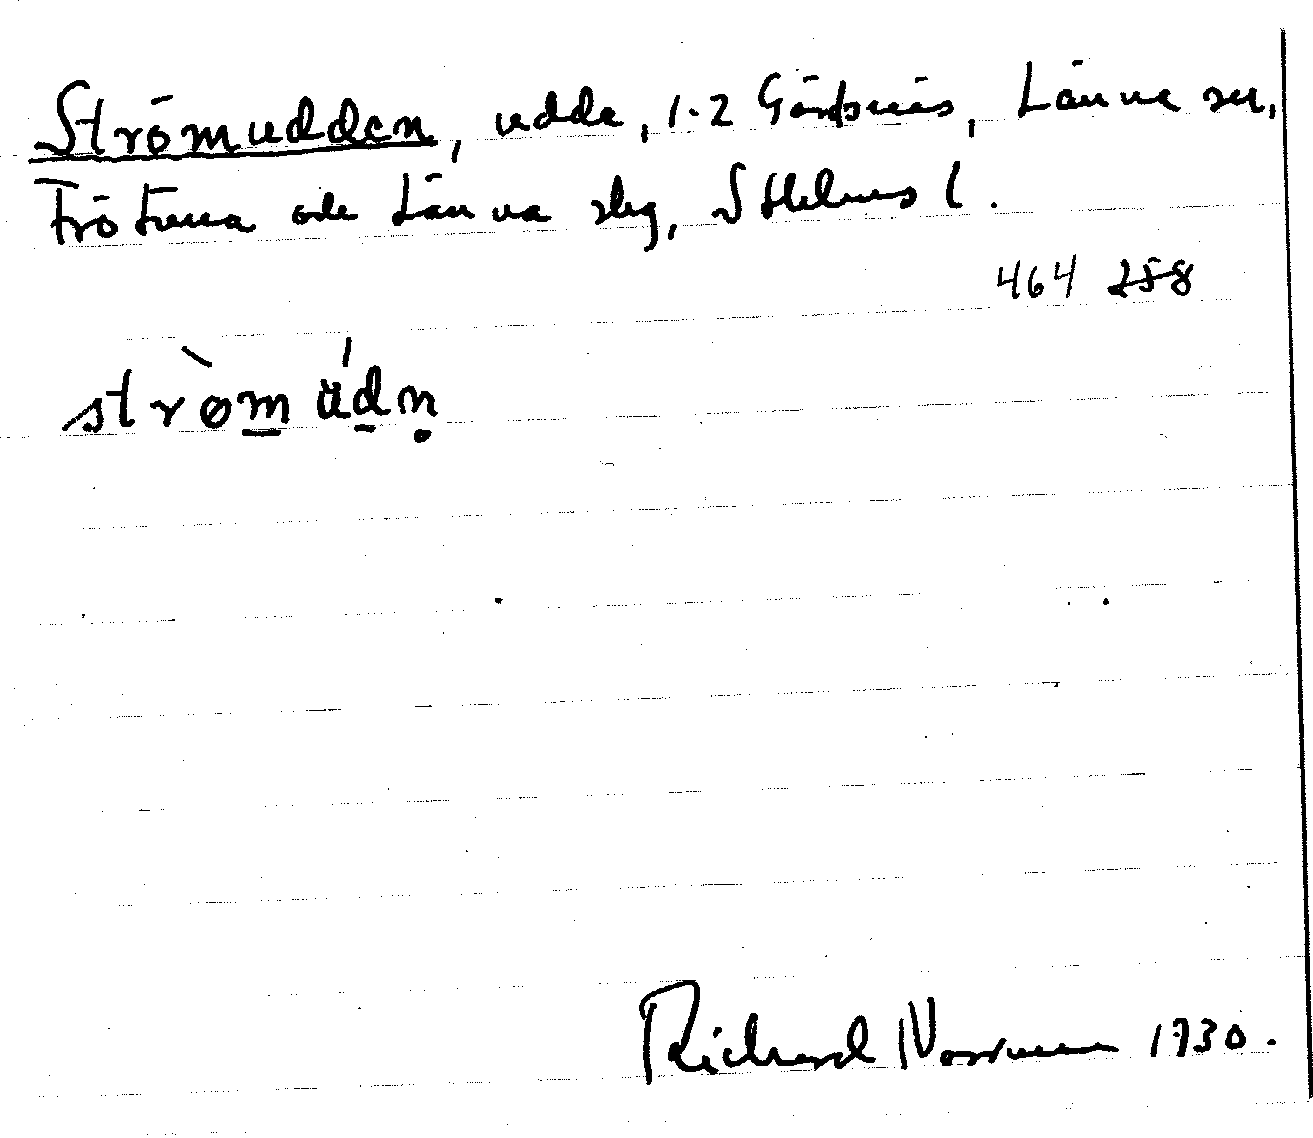 Strömudden, udde, 1-2 Gåsnäs, Länna sn,
Frötuna och Länna slg, Sthlms l.
464 258
strömudn
Richard Norrman 1930.